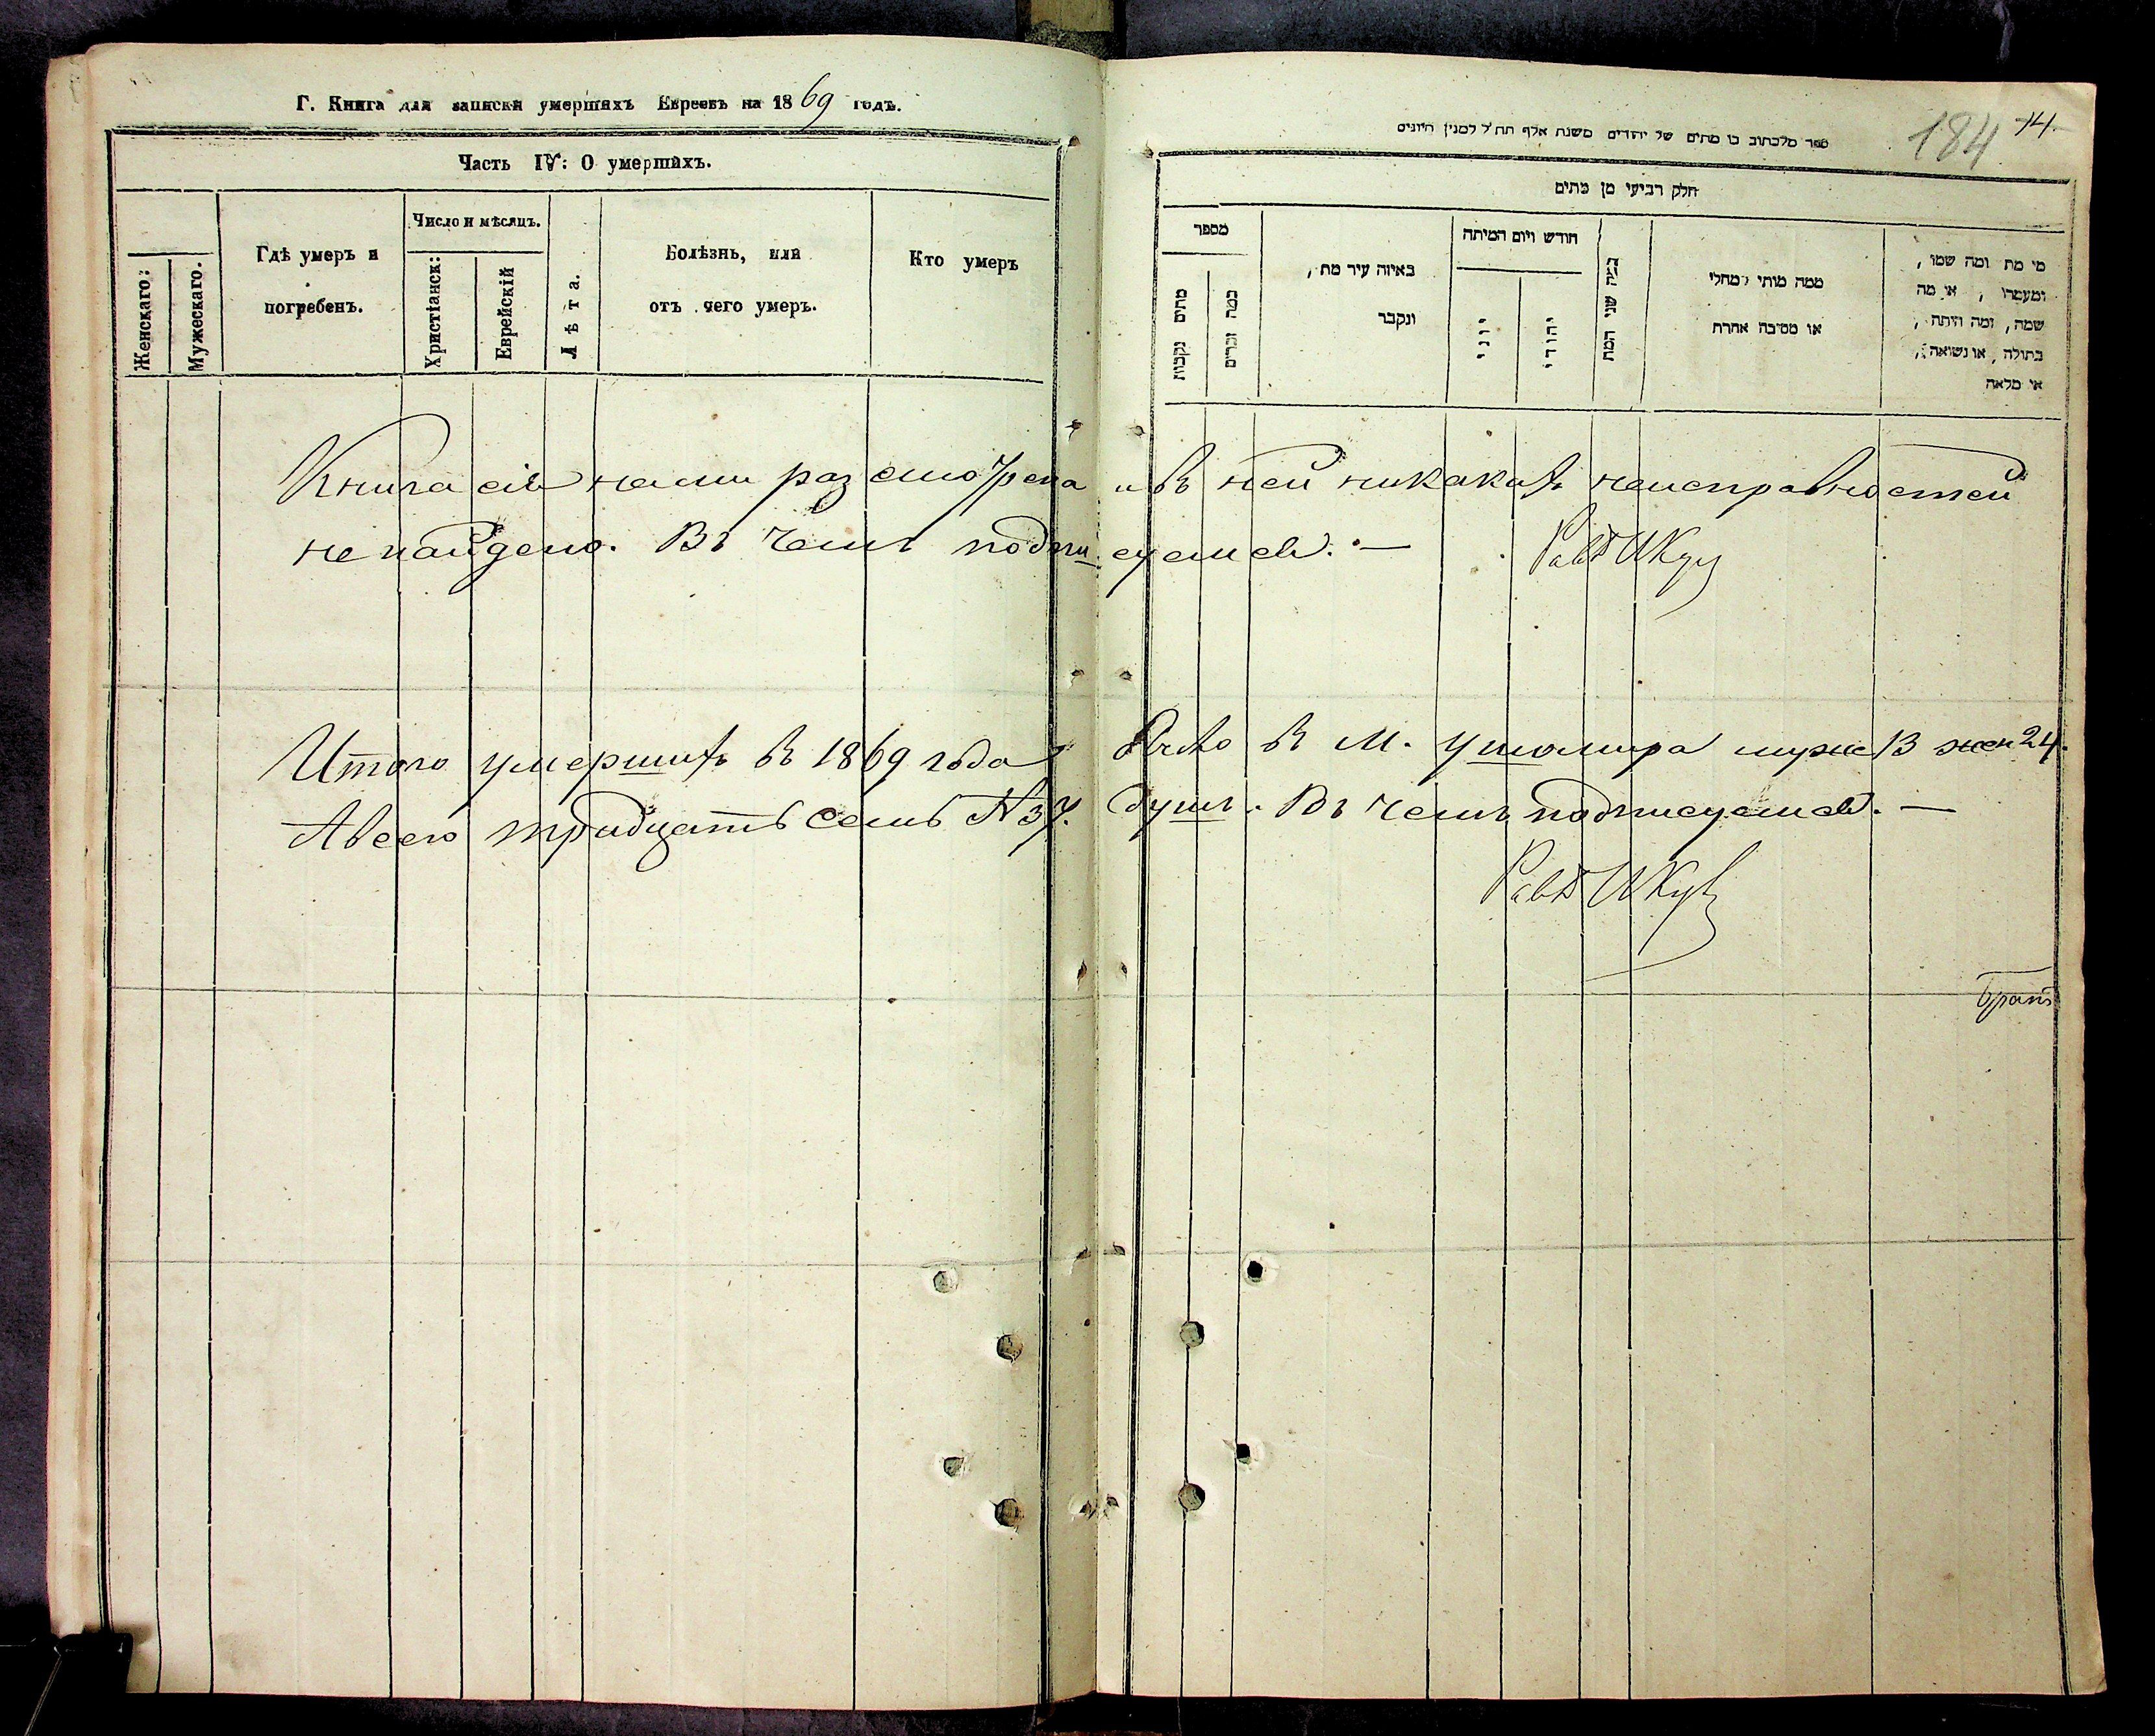 Г. Книга для записки умершихъ Евреевъ на 1869 годъ.
Часть IV: О умершихъ.
Женскаго:
Мужескаго.
Гдѣ умеръ и
погребенъ.
Число и мѣсяцъ.
Христіанск:
Еврейскій
Лѣта.
Болѣзнь, или
отъ чего умеръ.
Кто умеръ
184 14.
ספר מלכתוב בו מתים של יהודים משנת אלף תת"ל למנין היונים
חלק רביעי מן מתים
מספר
מתים נקבות
כמה זכרים
באיזה עיר מת,
ונקבר
חודש ויום המיתה
יוני
יהודי
כמה שני המת
ממה מותי מחלי
או מסיבה אחרת
מי מת ומה שמו,
ומעמדו, או מה
שמה, ומה היתה,
בתולה, או נשואה,
או מלאה
Книга сія нами разсмотрена и въ ней никакихъ неисправностей
не найдено. Въ чемъ подписуемся. — Раввинъ
Итого умершихъ въ 1869 года было въ м. Ушомира муж 13 жен 24.
А всего тридцать семь № 37. душъ. Въ чемъ подписуемся. —
Раввинъ